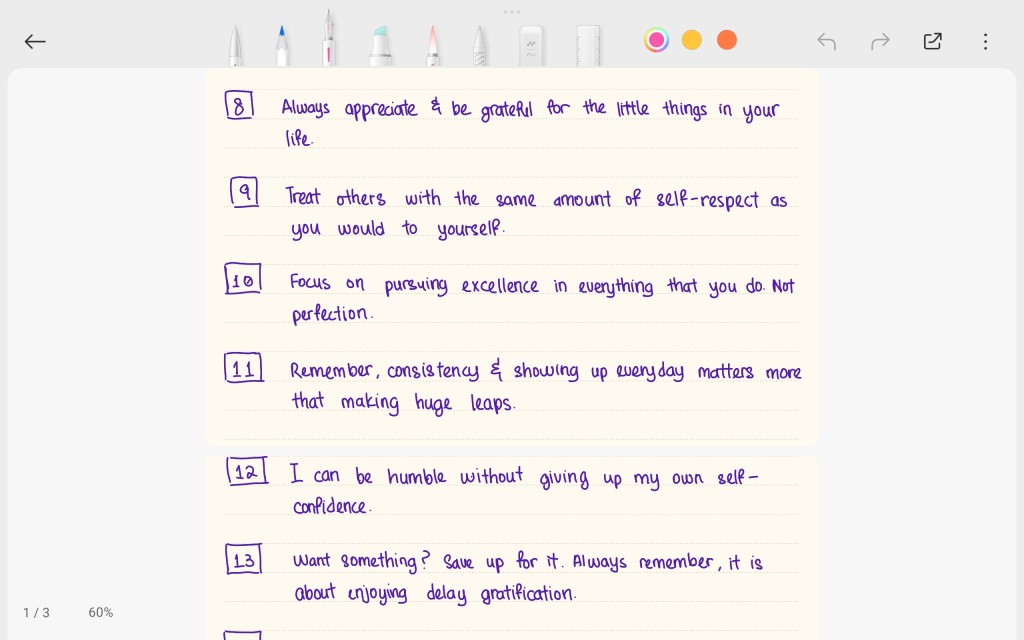 8 Always appreciate & be grateful for the little things in your
life.
9 Treat others with the same amount of self-respect as
you would to yourself.
10 Focus on pursuing excellence in everything that you do. Not
perfection.
11 Remember, consistency & showing up everyday matters more
that making huge leaps.
12 I can be humble without giving up my own self-
confidence.
13 Want something? Save up for it. Always remember, it is
about enjoying delay gratification.
1 / 3 60%